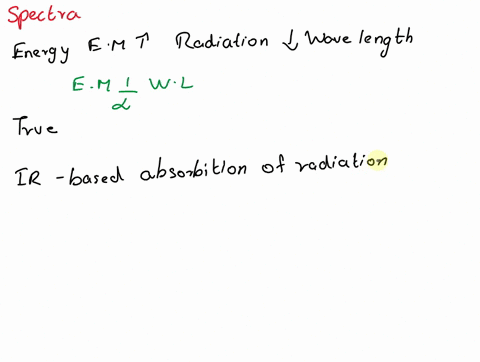 Spectra
Energy E.M ↑ Radiation ↓ Wave length
E.M 1/α W.L
True
IR - based absorbition of radiation